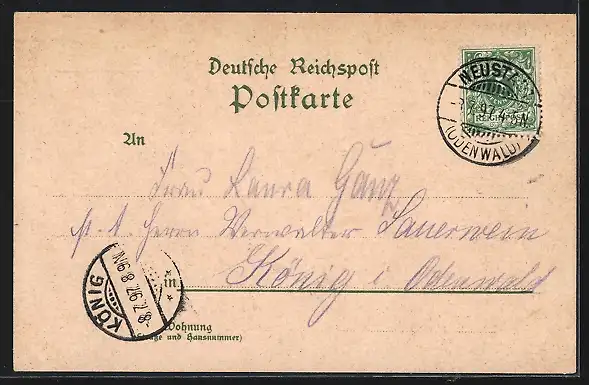 Deutsche Reichspost
Postkarte
NEUSTA
97 4-5N.
(ODENWALD)
An
Frau Laura Ganz
p. A. Herrn Verwalter Sauerwein
in
König i Odenwald
KÖNIG
-8 7. 97. 8-9N.
Wohnung
(Straße und Hausnummer)